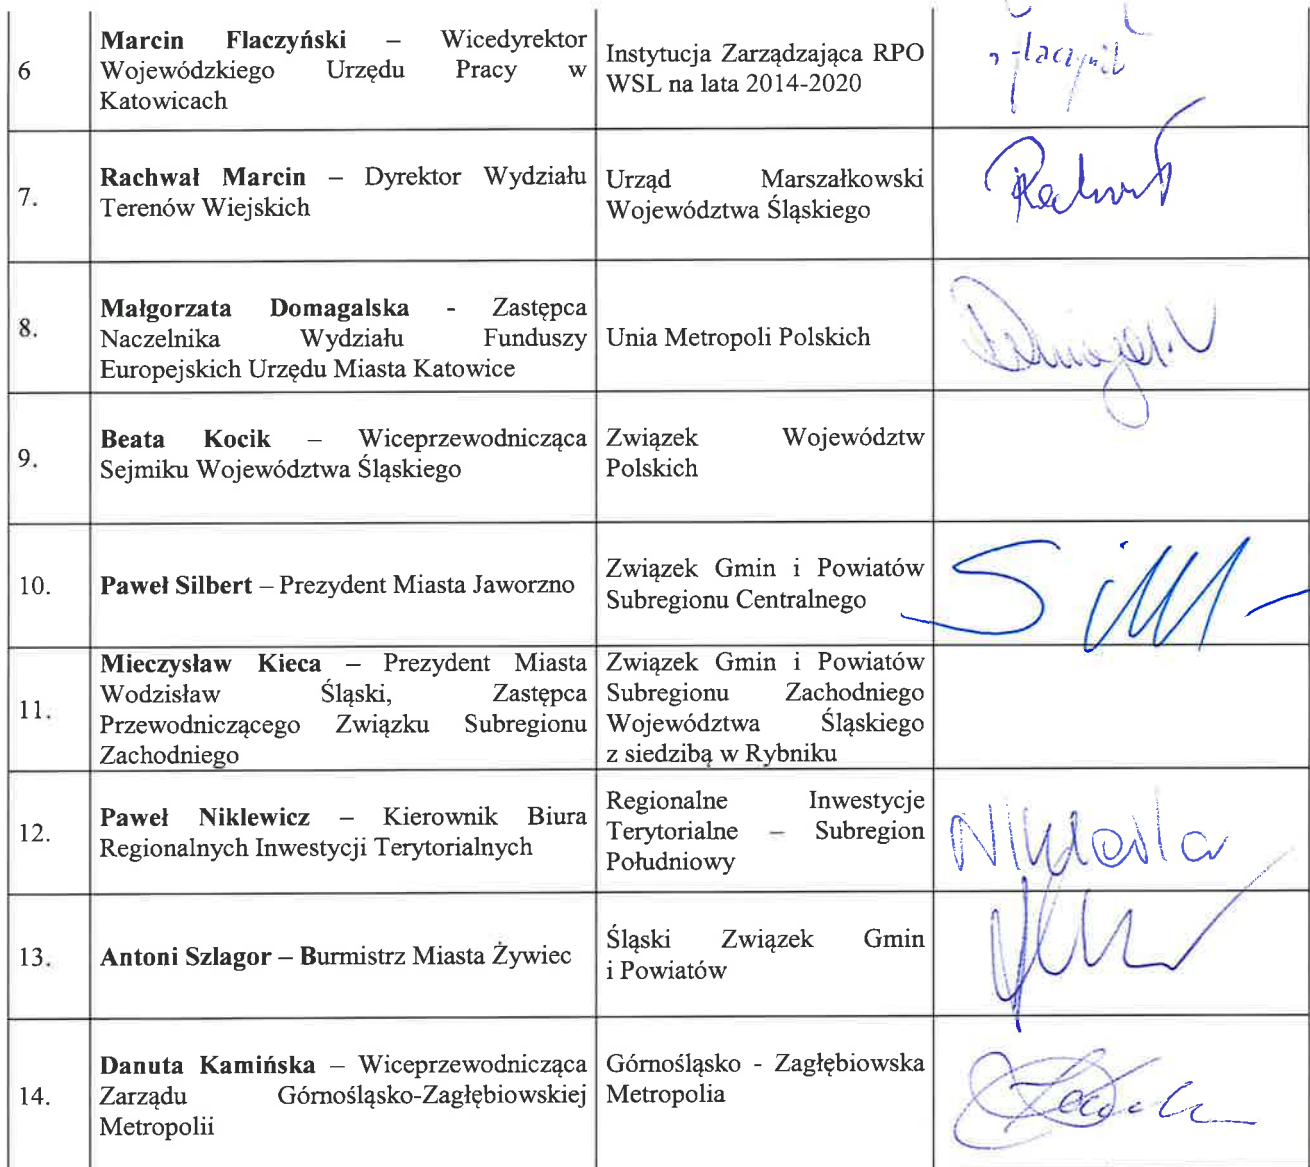 6
Marcin Flaczyński – Wicedyrektor
Wojewódzkiego Urzędu Pracy w
Katowicach
Instytucja Zarządzająca RPO
WSL na lata 2014-2020
7.
Rachwał Marcin – Dyrektor Wydziału
Terenów Wiejskich
Urząd Marszałkowski
Województwa Śląskiego
8.
Małgorzata Domagalska - Zastępca
Naczelnika Wydziału Funduszy
Europejskich Urzędu Miasta Katowice
Unia Metropoli Polskich
9.
Beata Kocik – Wiceprzewodnicząca
Sejmiku Województwa Śląskiego
Związek Województw
Polskich
10.
Paweł Silbert – Prezydent Miasta Jaworzno
Związek Gmin i Powiatów
Subregionu Centralnego
11.
Mieczysław Kieca – Prezydent Miasta
Wodzisław Śląski, Zastępca
Przewodniczącego Związku Subregionu
Zachodniego
Związek Gmin i Powiatów
Subregionu Zachodniego
Województwa Śląskiego
z siedzibą w Rybniku
12.
Paweł Niklewicz – Kierownik Biura
Regionalnych Inwestycji Terytorialnych
Regionalne Inwestycje
Terytorialne – Subregion
Południowy
13.
Antoni Szlagor – Burmistrz Miasta Żywiec
Śląski Związek Gmin
i Powiatów
14.
Danuta Kamińska – Wiceprzewodnicząca
Zarządu Górnośląsko-Zagłębiowskiej
Metropolii
Górnośląsko - Zagłębiowska
Metropolia